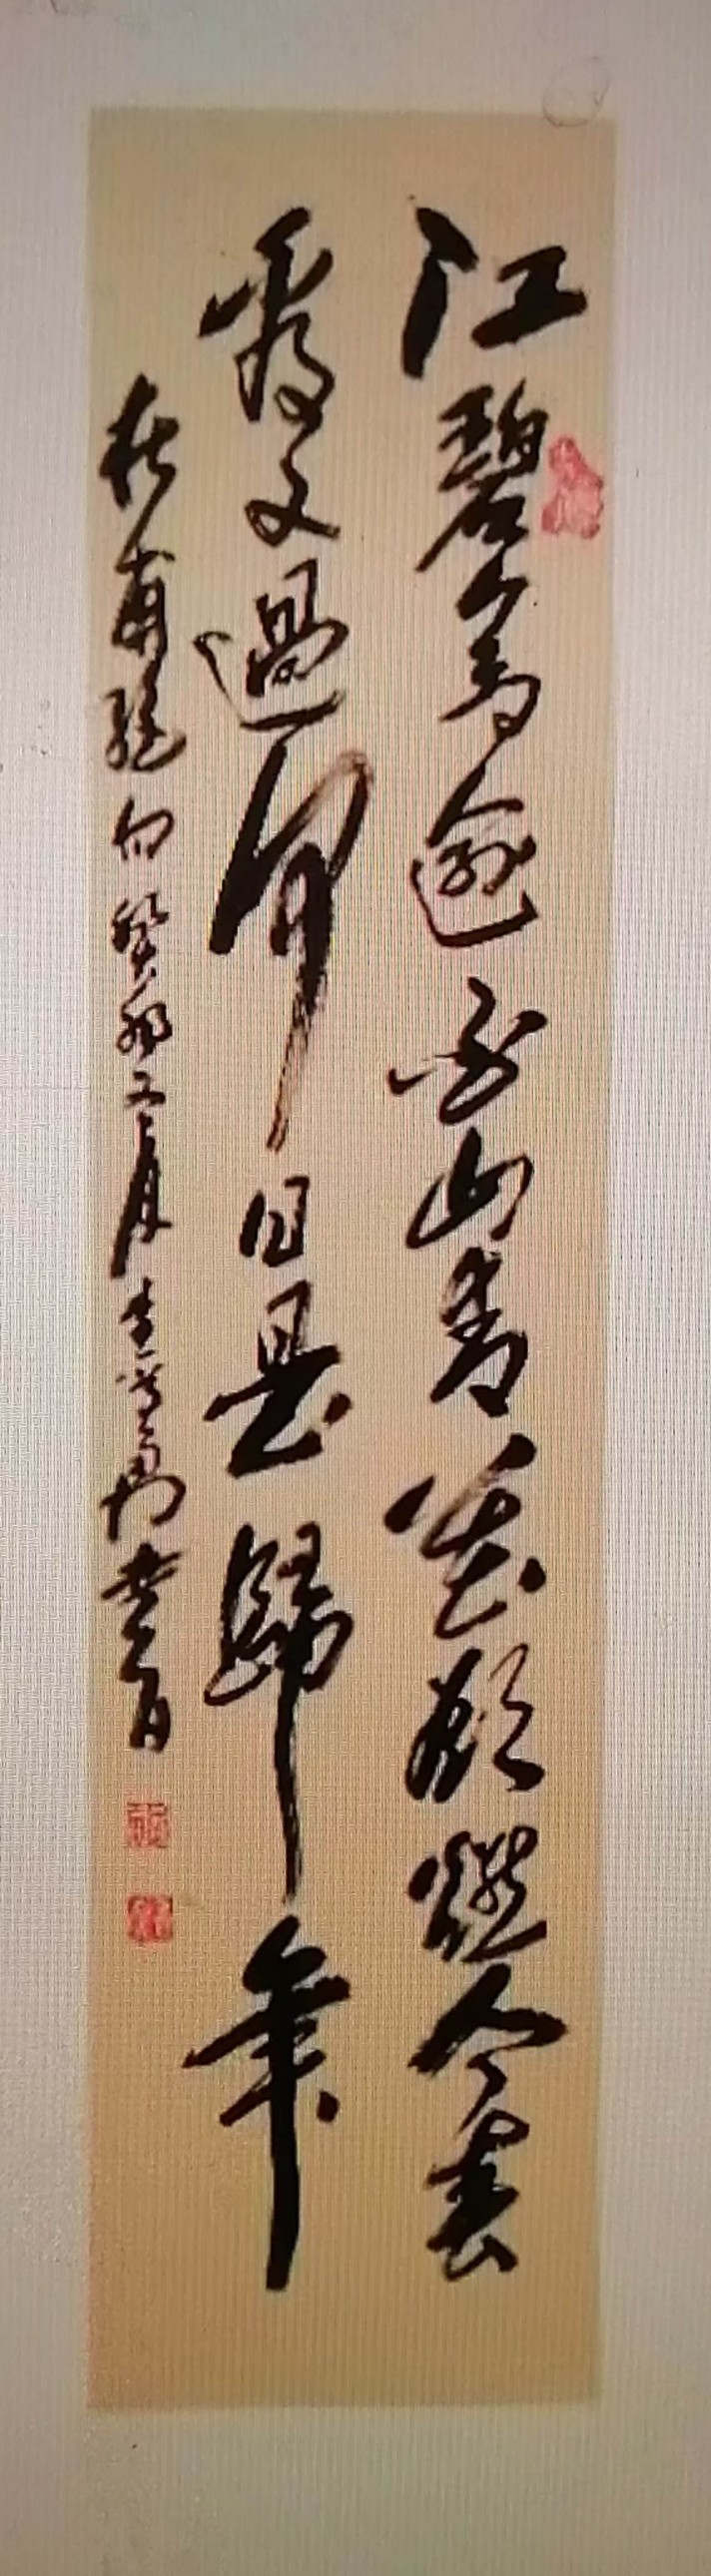 江碧鳥逾白山青花欲燃今春
看又過何日是歸年
杜甫絕句癸卯五月李
書